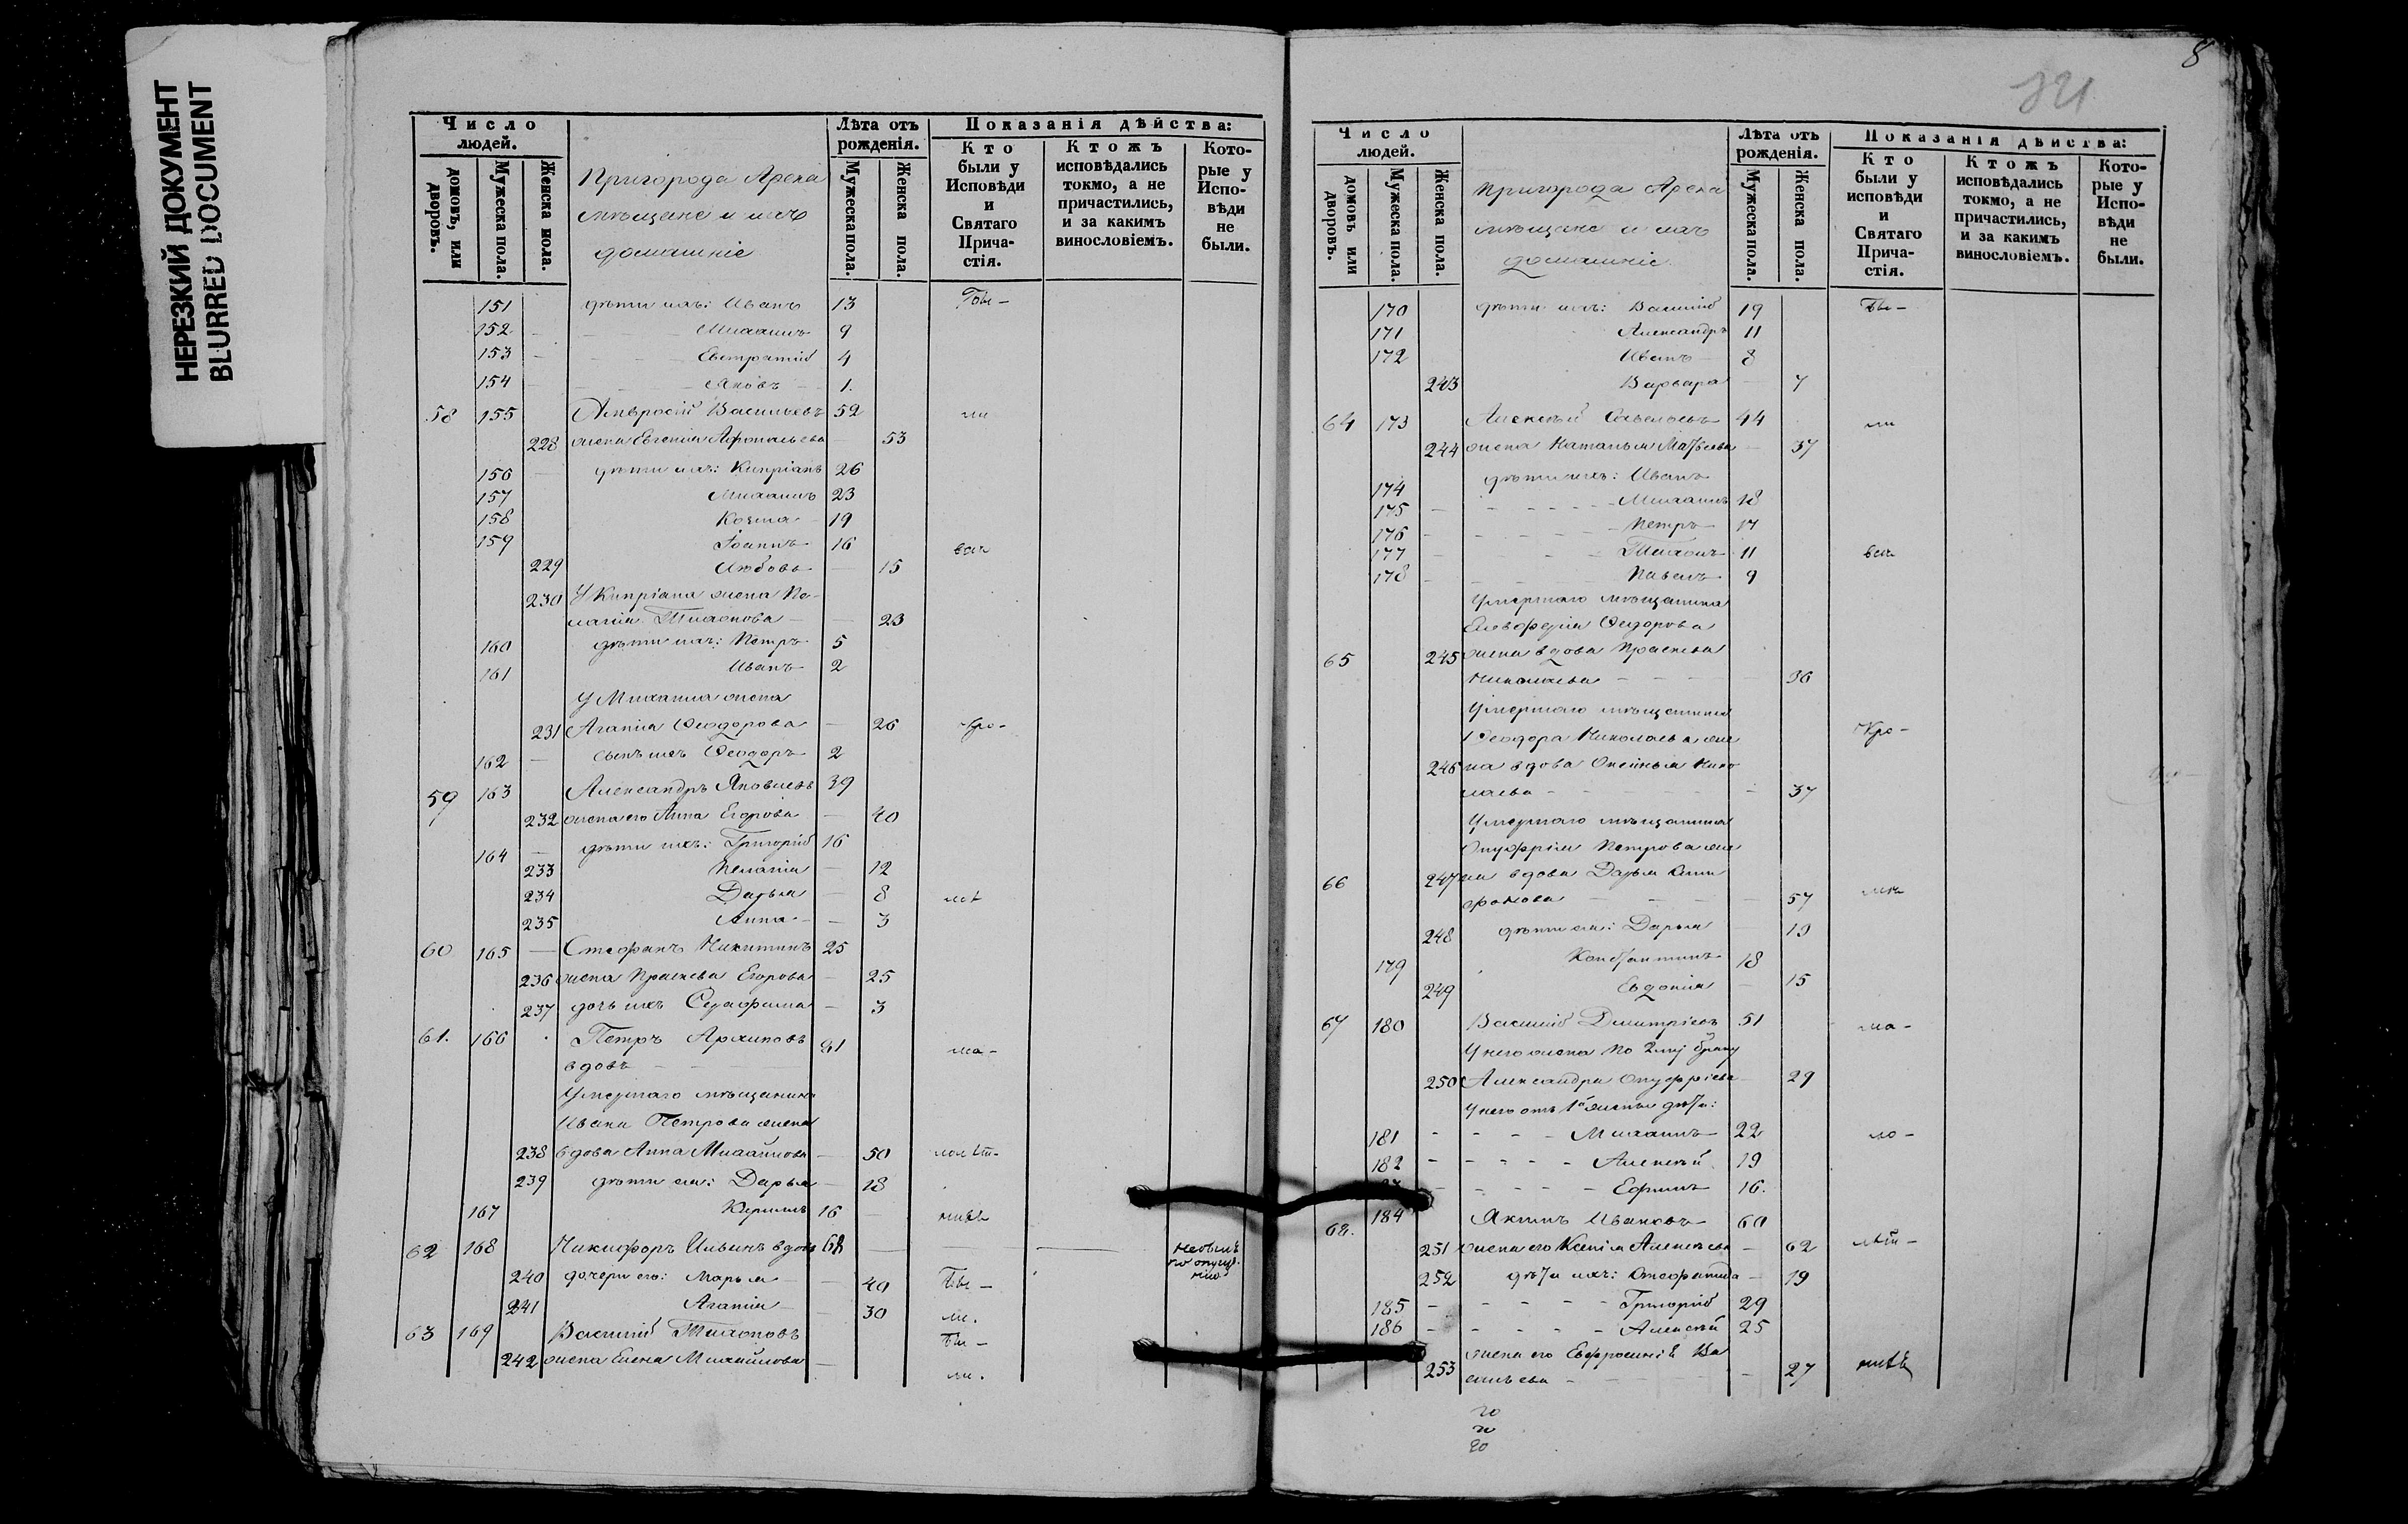 НЕРЕЗКИЙ ДОКУМЕНТ
BLURRED DOCUMENT
Число людей.
домовъ, или дворовъ.
Мужеска пола.
Женска пола.
Пригорода Арска
мѣщане и ихъ
домашніе
Лѣта отъ рожденія.
Мужеска пола.
Женска пола.
Показанія дѣйства:
Кто были у Исповѣди и Святаго Причастія.
Ктожъ исповѣдались токмо, а не причастились, и за какимъ винословіемъ.
Которые у Исповѣди не были.
151 дѣти ихъ: Иванъ 13 Бы-
152 Михаилъ 9
153 Евстратій 4
154 Яковъ 1.
58 155 Амвросій Васильевъ 52 ли
228 жена Евгенія Афонасьева 53
156 дѣти ихъ: Кипріанъ 26
157 Михаилъ 23
158 Козма 19
159 Іоаннъ 16 всѣ
229 Любовь 15
230 У Кипріана жена Пе-
лагія Тихонова 23
160 дѣти ихъ: Петръ 5
161 Иванъ 2
У Михаила жена
231 Агапія Ѳеодорова 26 кро-
162 сынъ ихъ Ѳеодоръ 2
59 163 Александръ Яковлевъ 39
232 жена его Анна Егорова 40
164 дѣти ихъ: Григорій 16
233 Пелагія 12
234 Дарья 8 мѣ
235 Анна 3
60 165 Стефанъ Никитинъ 25
236 жена Праскева Егорова 25
237 дочь ихъ Серафима 3
61. 166 Петръ Архиповъ 81 ма-
вдовъ
Умершаго мѣщанина
Ивана Петрова жена
238 вдова Анна Михайлова 50 лолѣт-
239 дѣти ея: Дарья 18
167 Кириллъ 16 нихъ
62 168 Никифоръ Ильинъ вдовъ 68 небылъ
по опуще-
нію
240 дочери его: Марья 40 Бы-
241 Агапія 30 ли.
63 169 Василій Тихоновъ Бы-
242 жена Елена Михайлова ли.
8
121
Число людей.
домовъ или дворовъ.
Мужеска пола.
Женска пола.
Пригорода Арска
мѣщане и ихъ
домашніе
Лѣта отъ рожденія.
Мужеска пола.
Женска пола.
Показанія дѣйства:
Кто были у исповѣди и Святаго Причастія.
Ктожъ исповѣдались токмо, а не причастились, и за какимъ винословіемъ.
Которые у Исповѣди не были.
170 дѣти ихъ: Василій 19 Бы-
171 Александръ 11
172 Иванъ 8
243 Варвара 7
64 173 Алексѣй Савельевъ 44 ли
244 жена Наталья Матвѣева 37
174 дѣти ихъ: Иванъ
175 Михаилъ 18
176 Петръ 17
177 Тихонъ 11 всѣ
178 Павелъ 9
Умершаго мѣщанина
Елевферія Ѳедорова
65 245 жена вдова Праскева
Николаева 36
Умершаго мѣщанина
Ѳеодора Николаева же кро-
246 на вдова Ксенья Нико
лаева 37
Умершаго мѣщанина
Онуфрія Петрова же
66 247 на вдова Дарья
57 мѣ
248 дѣти ея: Дарья 19
179 Константинъ 18
249 Евдокія 15
67 180 Василій Димитріевъ 51 ма-
У него жена по 2му браку
250 Александра Онуфріева 29
У него отъ 1й жены дѣти:
181 Михаилъ 22 ло-
182 Алексѣй 19
Ефимъ 16.
68. 184 Якимъ Ивановъ 60
251 жена его Ксенія Алексѣева 62 лѣт-
252 дѣти ихъ: Стефанида 19
185 Григорій 29
186 Алексѣй 25
жена его Евфросинія Ва
253 сильева 27 нихъ
20
20
20